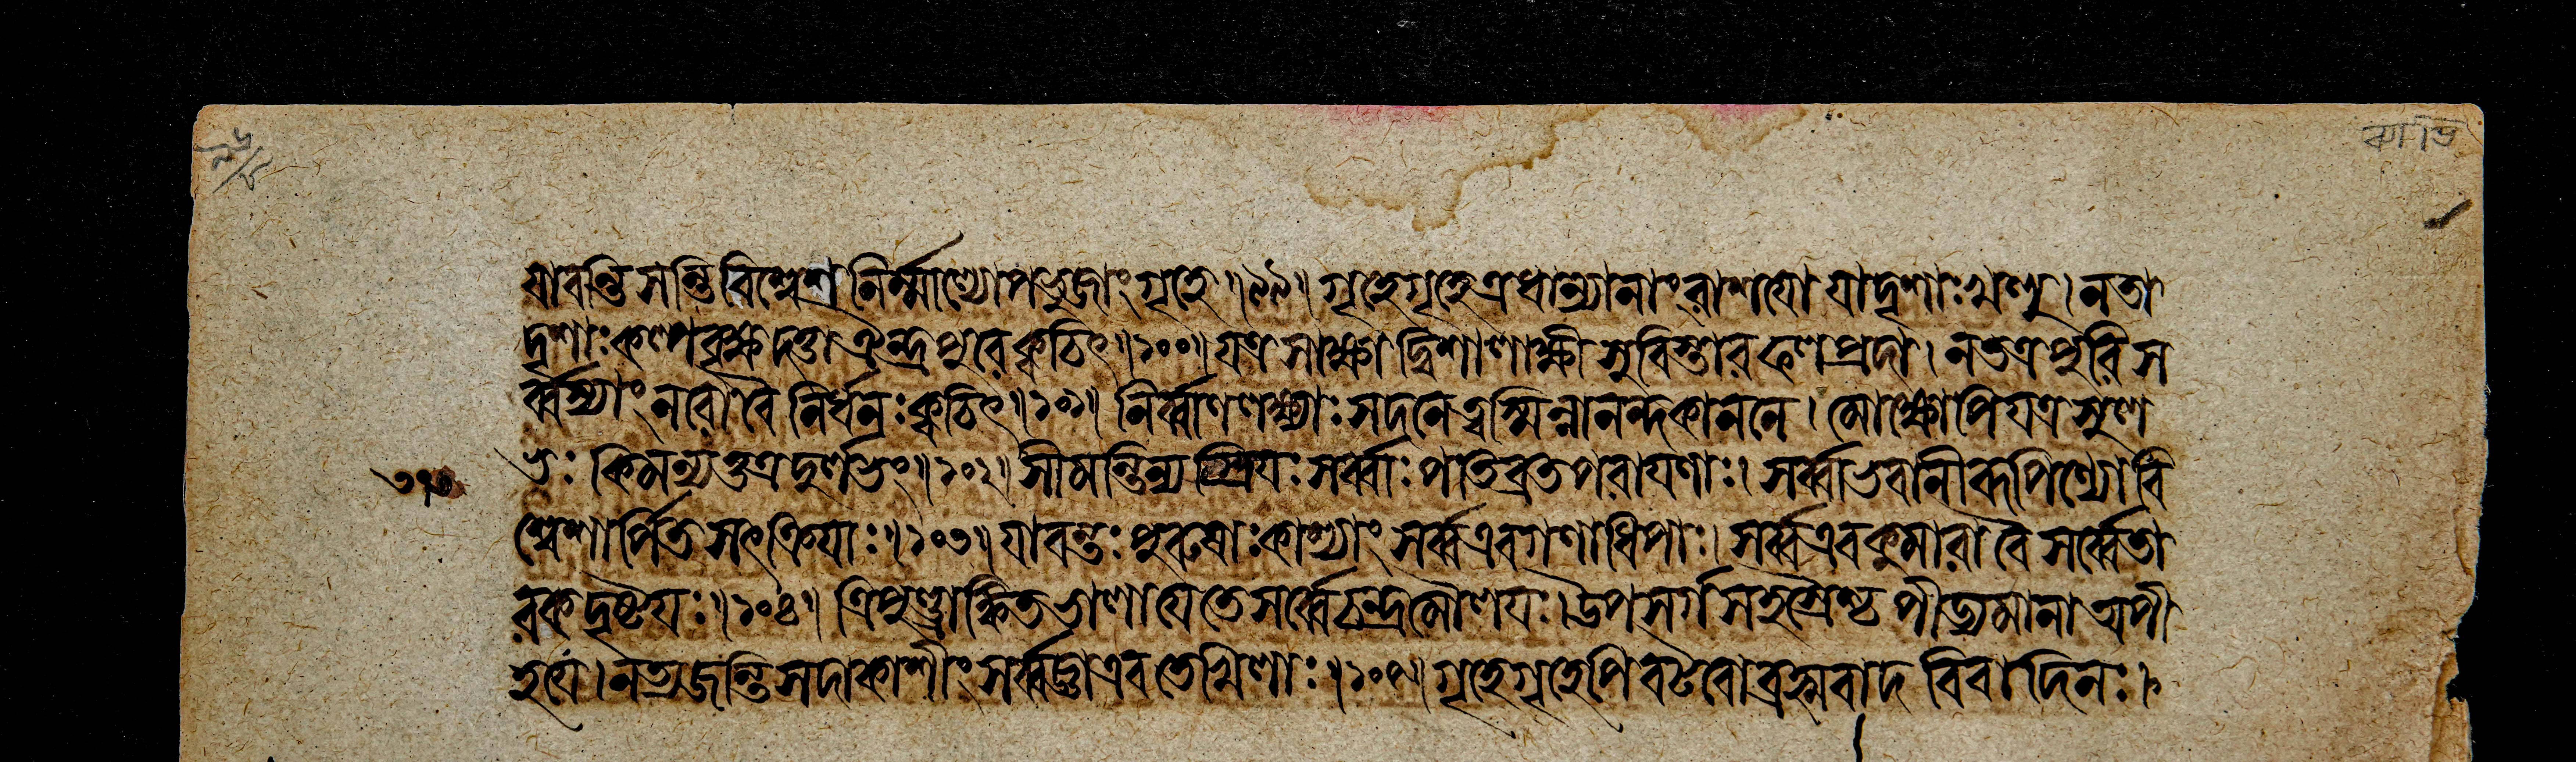 যাবন্তি সন্তি বিশ্বেশ নির্ম্মাল্যোপভুজাং গৃহে ॥৯৯॥ গৃহে গৃহেত্র ধান্যানাং রাশয়ো যাদৃশাঃ খলু । ন তা
দৃশাঃ কল্পবৃক্ষদত্তা ঐন্দ্রপুরে ক্বচিৎ ॥১০০॥ যত্র সাক্ষাদ্বিশালাক্ষী সুবিস্তারফলপ্রদা । ন তত্র পুরি স
র্ব্বস্যাং নরো বৈ নির্ধনঃ ক্বচিৎ ॥১০১॥ নির্ব্বাণলক্ষ্ম্যাঃ সদনে ত্বস্মিন্নানন্দকাননে । মোক্ষোপি যত্র সুল
ভঃ কিমন্যত্তত্র দুর্লভং ॥১০২॥ সীমন্তিন্য স্ত্রিয়ঃ সর্ব্বাঃ পতিব্রতপরায়ণাঃ । সর্ব্বা ভবানীরূপিণ্যো বি
শ্বেশার্পিতসৎক্রিয়াঃ ॥১০৩॥ যাবন্তঃ পুরুষাঃ কাশ্যাং সর্ব্ব এব গণাধিপাঃ । সর্ব্ব এব কুমারা বৈ সর্ব্বে তা
রকদৃষ্টয়ঃ ॥১০৪॥ ত্রিপুণ্ড্রাঙ্কিতভালা যে তে সর্ব্বে চন্দ্রমৌলয়ঃ । উপসর্গসহস্রৈস্তু পীড্যমানা অপী
হ যে । ন ত্যজন্তি সদা কাশীং সর্ব্বজ্ঞা এব তেখিলাঃ ॥১০৫॥ গৃহে গৃহেপি বটবো ব্রহ্মবাদ বিবাদিনঃ ।